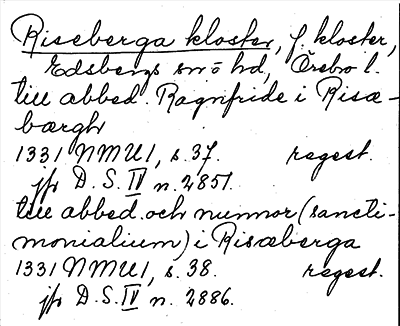 Riseberga kloster, f. kloster,
Edsbergs sn o hd, Örebro l.
till abbed. Ragnfride i Risæ-
bærgh
1331 NMU1, s. 37. regest.
jfr D. S. IV n. 2851.
till abbed. och nunnor (sancti-
monialium) i Risæberga
1331 NMU1, s. 38. regest.
jfr D. S. IV n. 2886.